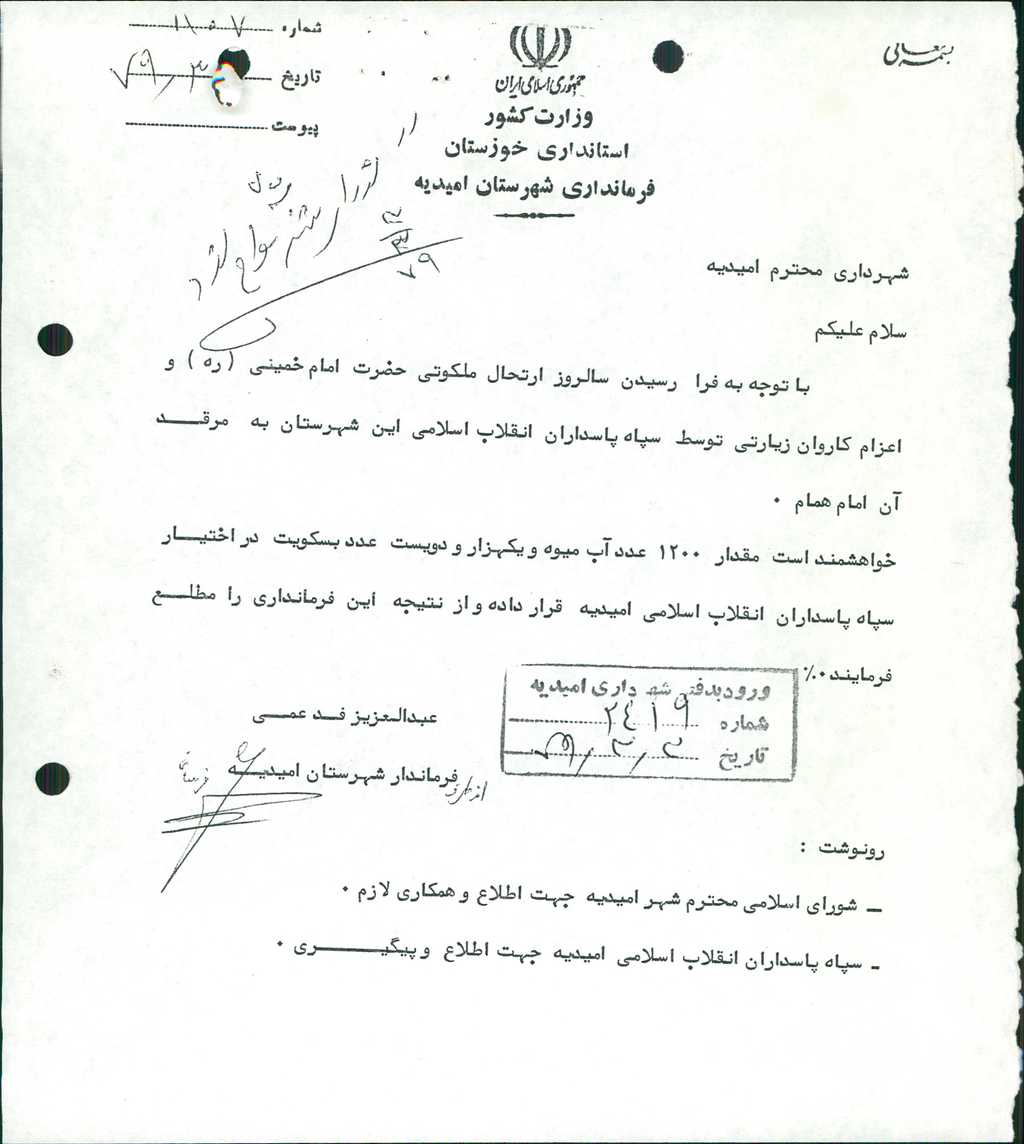 بسمه تعالی
جمهوری اسلامی ایران
وزارت کشور
استانداری خوزستان
فرمانداری شهرستان امیدیه
شماره ۱۱۰۷
تاریخ ۷۹/۳
پیوست
۷۹
شهرداری محترم امیدیه
سلام علیکم
با توجه به فرا رسیدن سالروز ارتحال ملکوتی حضرت امام خمینی (ره) و
اعزام کاروان زیارتی توسط سپاه پاسداران انقلاب اسلامی این شهرستان به مرقد
آن امام همام .
خواهشمند است مقدار ۱۲۰۰ عدد آب میوه و یکهزار و دویست عدد بسکویت در اختیار
سپاه پاسداران انقلاب اسلامی امیدیه قرار داده و از نتیجه این فرمانداری را مطلع
فرمایند ۰٪
ورود بدفتر شهرداری امیدیه
شماره ۲۴۱۹
تاریخ ۷۹/۳/۳
عبدالعزیز فدعمی
فرماندار شهرستان امیدیه
رونوشت :
ـ شورای اسلامی محترم شهر امیدیه جهت اطلاع و همکاری لازم .
ـ سپاه پاسداران انقلاب اسلامی امیدیه جهت اطلاع و پیگیری .